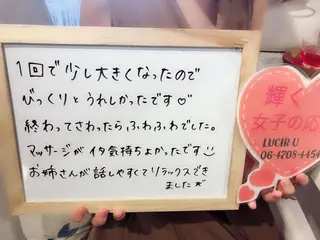 1回で少し大きくなったので
びっくりとうれしかったです♡
終わってさわったら、ふわふわでした。
マッサージがイタ気持ちよかったです
お姉さんが話しやすくてリラックスでき
ました☆
輝く
女子の応
LUCIR U
06-4708-4454